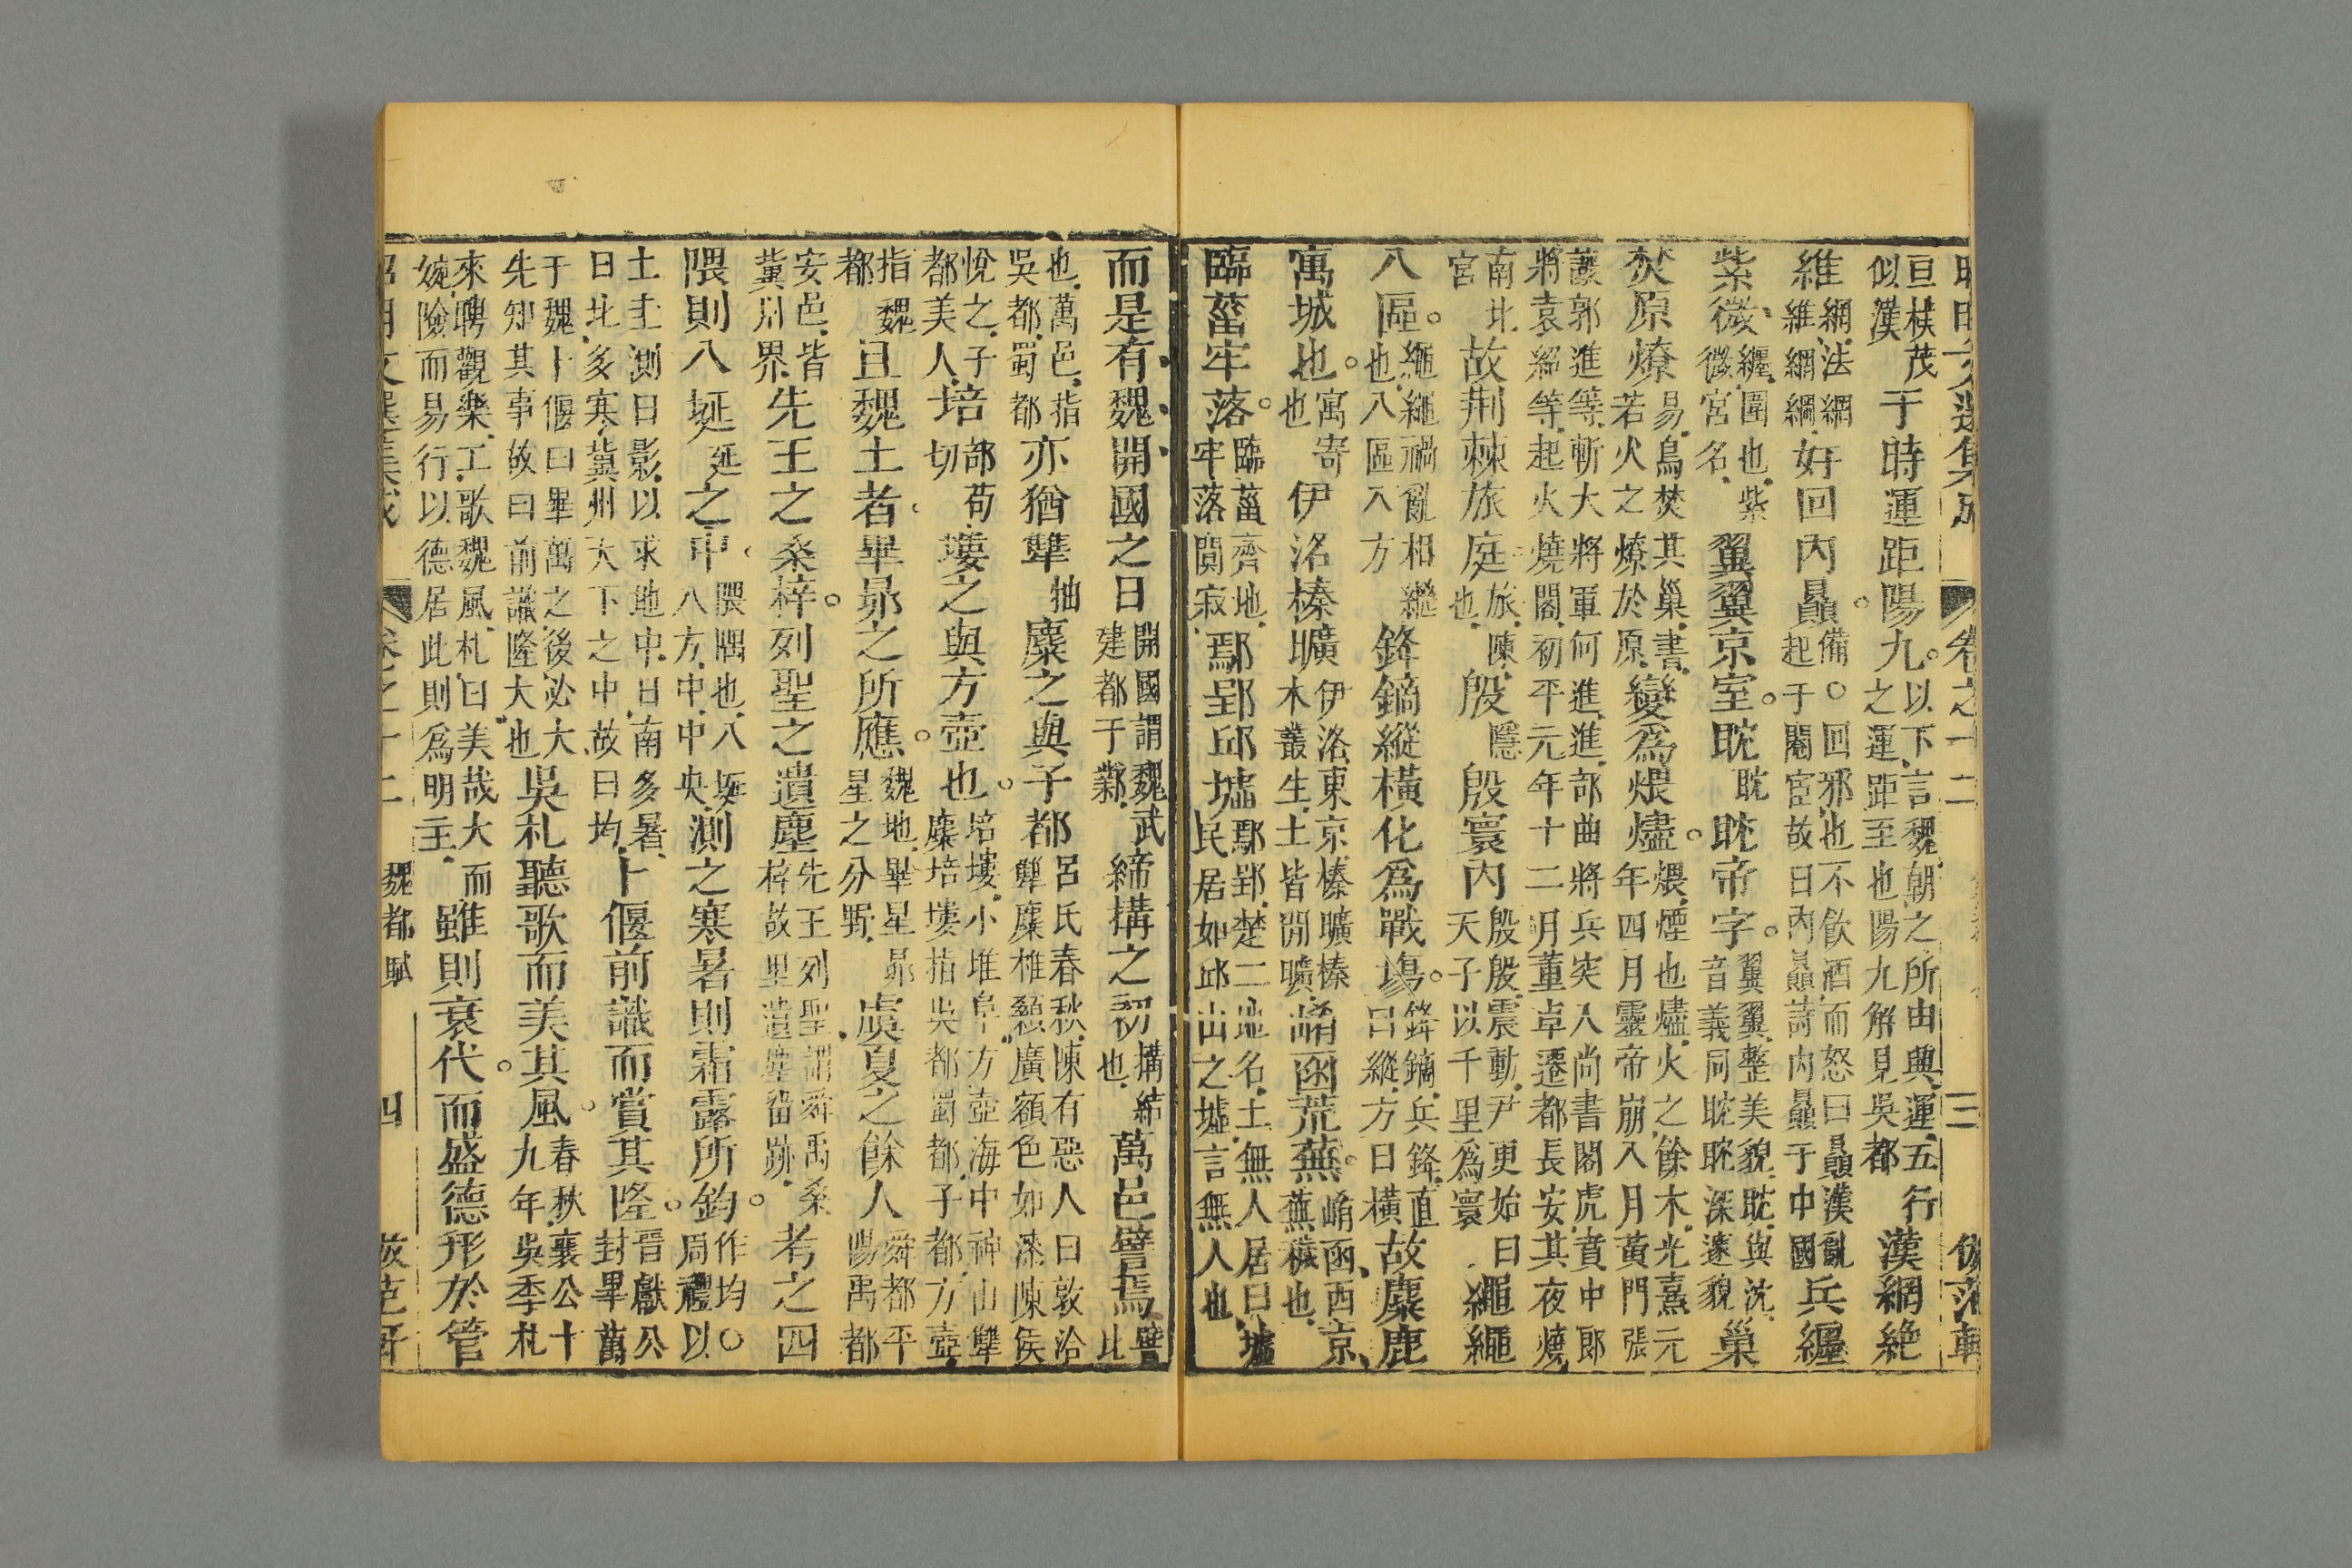 昭明文選集成 卷之十二 三 倣范軒
亘棋茂似漢于時運距陽九。以下言魏朝之所由典運五行之運距至也陽九解見吳都漢網絶
維網法網維維網綱好回內贔。備○回邪也不飲酒而怒曰贔漢亂起于閹宦故曰內贔詩內贔于中國兵纒
紫微、纒圍也紫微微宮名翼翼京室。眈耽眈帝宇。翼翼整美貌眈與沈音義同眈眈深邃貌巢
焚原燎易鳥焚其巢書若火之燎於原變爲煨燼。煨煙也燼火之餘木光熹元年四月靈帝崩八月黃門張
讓郭進等斬大將軍何進進部曲將兵突入尚書閣虎賁中郎將袁紹等起火燒閣初平元年十二月董卓遷都長安其夜燒
南北宮故荆棘旅庭旅陳也殷隱殷寰內殷殷震動尹更始曰天子以千里爲寰繩繩
八區。繩繩禍亂相繼也八區八方鋒鏑縱橫化爲戰塲。鋒鏑兵鋒直曰縱方曰橫故麋鹿
寓城也。寓寄也伊洛榛曠伊洛東京榛曠榛木叢生土皆閒曠崤函荒蕪。崤函西京蕪穢也
臨菑牢落。臨菑齊地牢落閴寂鄢郢邱墟鄢郢楚二地名土無人居曰墟民居如邱山之墟言無人也
而是有魏開國之日開國謂魏武建都于鄴締搆之初搆結也萬邑譬焉譬比
也萬邑指吳都蜀都亦猶犨麋之與子都呂氏春秋陳有惡人曰敦洽犨麋椎顙廣額色如漆陳侯
悅之子都美人培部苟切塿之與方壺也。培塿小堆阜方壺海中神山犨麋培塿指吳都蜀都子都方壺
指魏都且魏土者畢昴之所應。魏地畢星昴星之分野虞夏之餘人舜都平陽禹都
安邑皆冀州界先王之桑梓。列聖之遺塵先王列聖謂舜禹桑梓故里遺塵畱跡考之四
隈則八埏延之中隈隅也八埏八方中中央測之寒暑則霜露所鈞。作均○周禮以
土圭測日影以求地中日南多暑日北多寒冀州天下之中故曰均卜偃前識而賞其隆。晉獻公封畢萬
于魏卜偃曰畢萬之後必大先知其事故曰前識隆大也吳札聽歌而美其風。春秋襄公十九年吳季札
來聘觀樂工歌魏風札曰美哉大而婉險而易行以德居此則爲明主雖則衰代。而盛德形於管
昭明文選集成 卷之十二 魏都賦 四 倣范軒